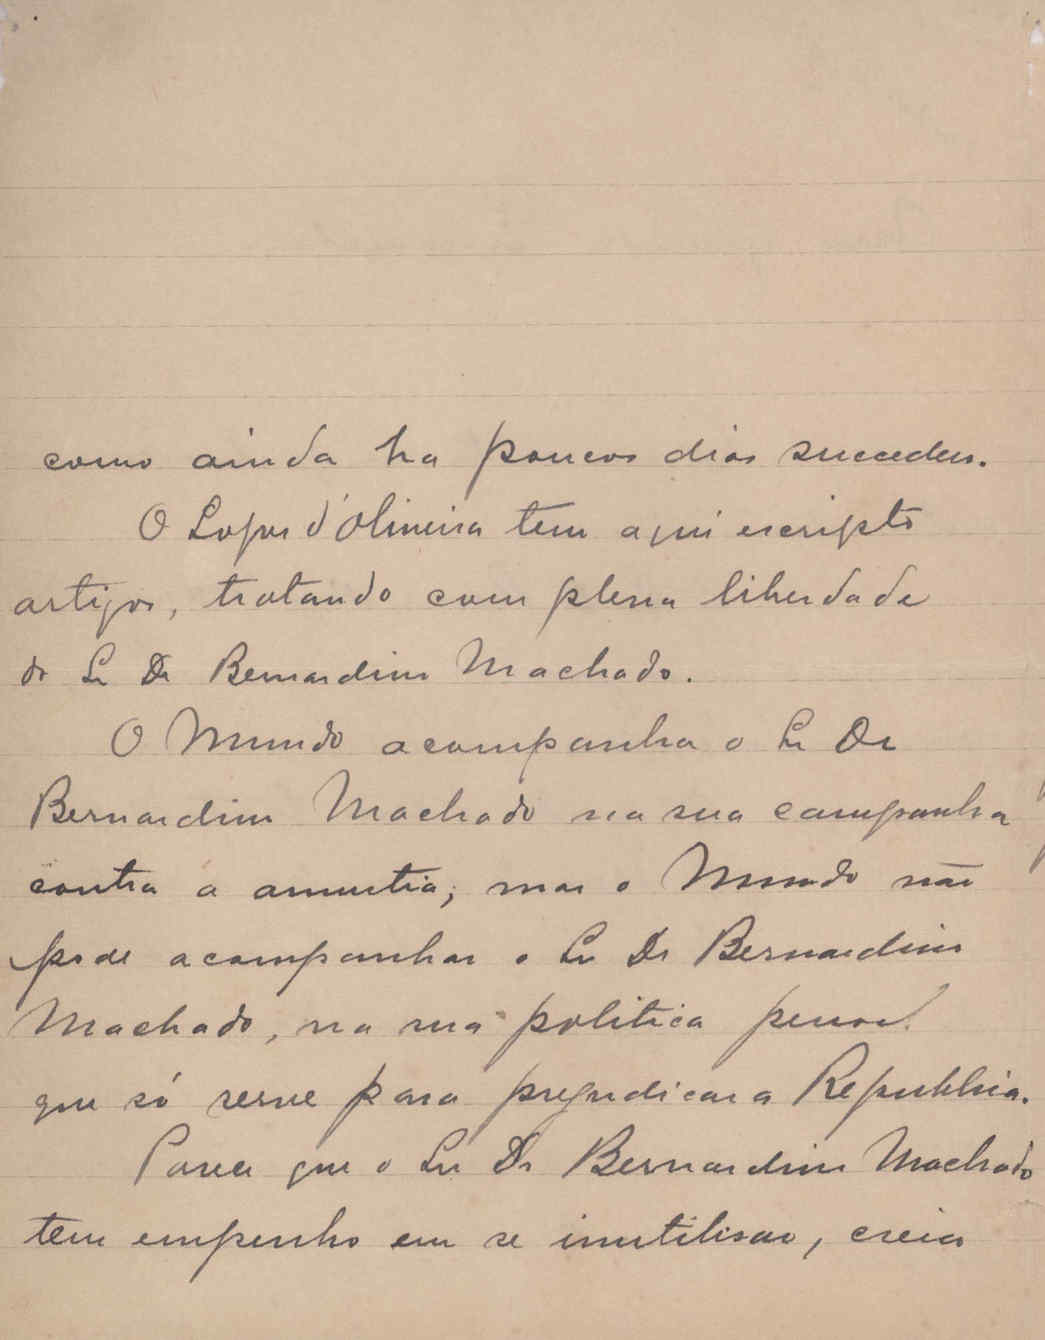 como ainda ha poucos dias succedeu.
O Lopes d'Oliveira tem aqui escripto
artigos, tratando com plena liberdade
do Sr Dr Bernardino Machado.
O Mundo acompanha o Sr Dr
Bernardino Machado na sua campanha
contra a amnistia; mas o Mundo não
pode acompanhar o Sr Dr Bernardino
Machado, na sua politica pessoal
que só serve para prejudicar a Republica.
Parece que o Sr Dr Bernardino Machado
tem empenho em se inutilisar, creia